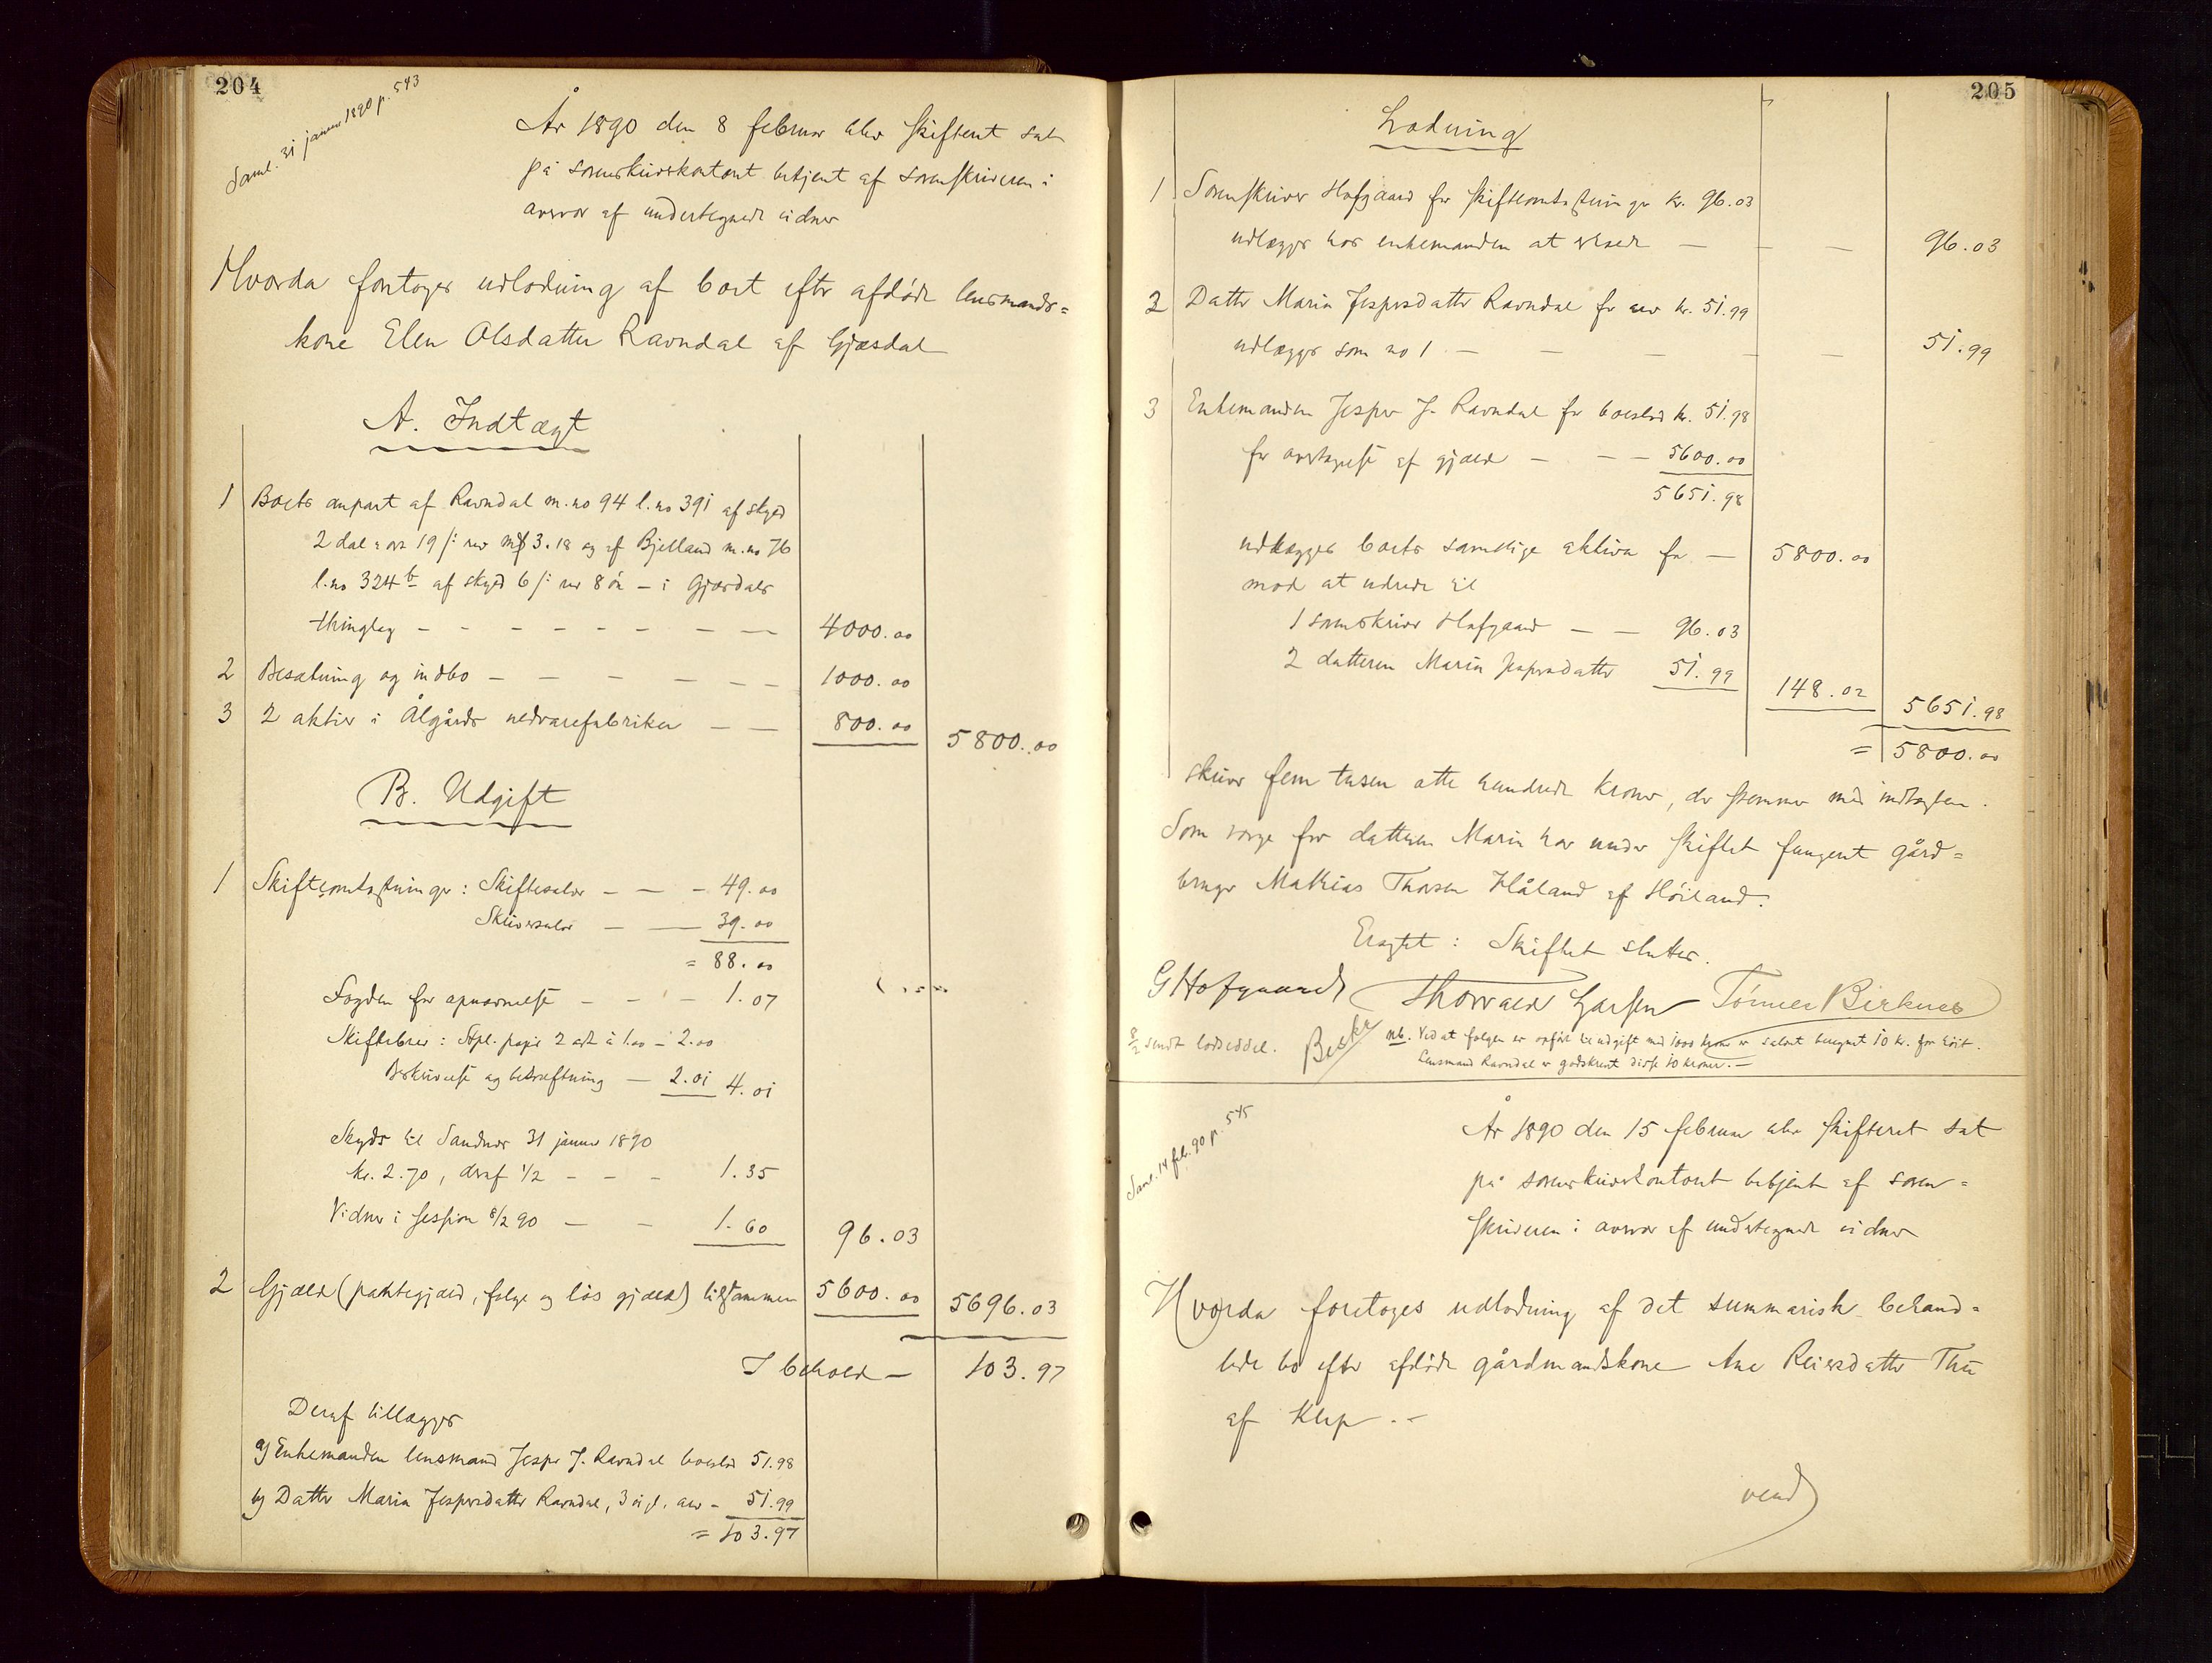 204
Saml. 31 januar 1890 p. 543
År 1890 den 8 februar blev skifteret sat
på sorenskriverkontoret betjent af sorenskriveren i
overvær af undertegnede vidner
Hvorda foretoges udlodning af boet efter afdøde lensmands-
kone Elen Olsdatter Ravndal af Gjæsdal
A. Indtægt
1 Boets anpart af Ravndal m.no 94 l.no 391 af skyld
2 daler ort 19 /: rev m/ 3.18 og af Bjelland m.no 76
l.no 324b af skyld 6 /: rev 8 øre – i Gjæsdals
thinglag – – – – – – – – 4000.00
2 Besætning og indbo – – – – – – 1000.00
3 2 aktier i Ålgårds uldvarefabriker – – 800.00 5800.00
B. Udgift
1 Skifteomkostninger: Skiftesalær – – – 49.00
Skriversalær – – 39.00
= 88.00
Fogden for opnævnelse – – – 1.07
Skiftebrev: Stpl. papir 2 ark à 1.00 – 2.00
Beskrivelse og bekræftning – 2.01 4.01
Skyds til Sandnes 31 januar 1890
kr. 2.70, deraf 1/2 – – – 1.35
Vidner i session 8/2 90 – – 1.60 96.03
2 Gjæld (pantegjæld, følge og løs gjæld) tilsammen 5600.00 5696.03
I behold – 103.97
Deraf tillægges
a) Enkemanden lensmand Jesper J. Ravndal boeslod 51.98
b) Datter Maria Jespersdatter Ravndal, arv – 51.99
= 103.97
205
Lodning
1 Sorenskriver Hofgaard for skifteomkostninger kr. 96.03
udlægges hos enkemanden at erholde – – – 96.03
2 Datter Maria Jespersdatter Ravndal for arv kr. 51.99
udlægges som no 1 – – – – – 51.99
3 Enkemanden Jesper J. Ravndal for boeslod kr. 51.98
for overtagelse af gjæld – – – 5600.00
5651.98
udlægges boets samtlige aktiva for – 5800.00
mod at udrede til
1 sorenskriver Hofgaard – – 96.03
2 datteren Maria Jespersdatter 51.99 148.02 5651.98
= 5800.00
skriver fem tusen otte hundrede kroner, der stemmer med indtægten.
Som værge for datteren Maria har under skiftet fungeret gård-
bruger Mathias Thorsen Håland af Høiland.
Eragtet: Skiftet sluttes.
G Hofgaard Thorvald Larsen Tönnes Birknes
8/2 sendt lodseddel.
NB. Ved at følgen er opført til udgift med 1000 kroner er salæret beregnet 10 kr. for høit.
Lensmand Ravndal er godskrevet disse 10 kroner. –
Saml. 14 feb. 90 p. 545
År 1890 den 15 februar blev skifteret sat
på sorenskriverkontoret betjent af soren-
skriveren i overvær af undertegnede vidner
Hvorda foretoges udlodning af det summarisk behand-
lede bo efter afdøde gårdmandskone Ane Reiersdatter Thu
af Klep. –
vend